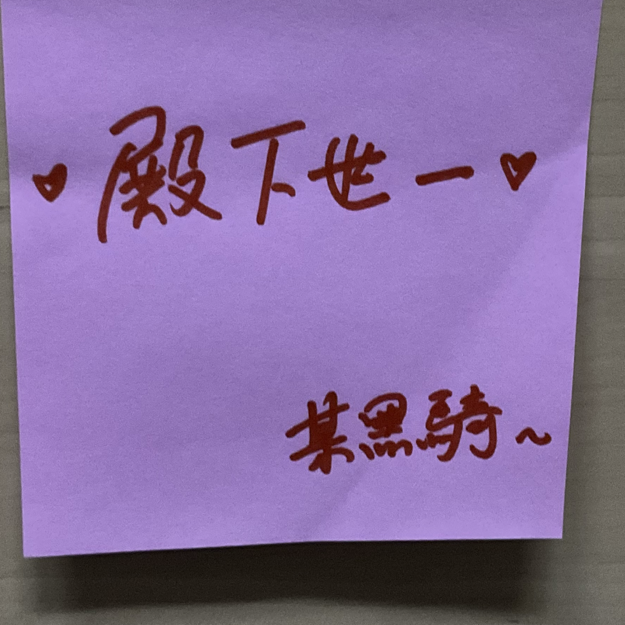 ♥殿下世一♥
某黑騎~